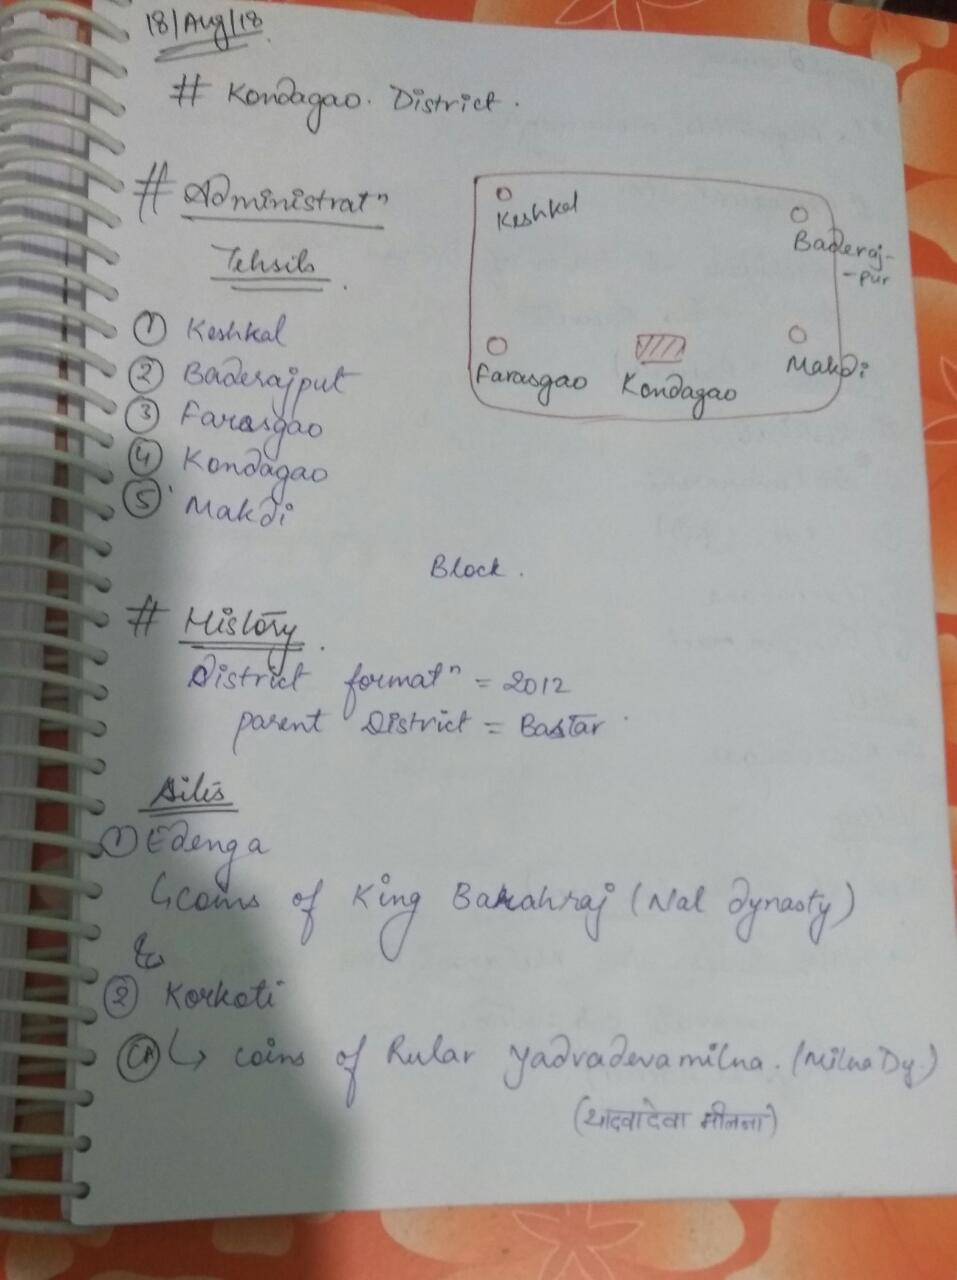 18/Aug/18
# Kondagao. District.
# Administratⁿ
Tehsils.
① Keshkal
② Baderajput
③ Farasgao
④ Kondagao
⑤ Makdi
Keshkal
Baderaj-
-pur
Farasgao
Kondagao
Makdi
Block.
# History.
District formatⁿ = 2012
parent District = Bastar
Sites
① Edenga
↳ coins of King Barahraj (Nal dynasty)
&
② Korkoti
↳ coins of Rular Yadvadevamilna. (Milna Dy.)
(यादवादेवा मीलना)